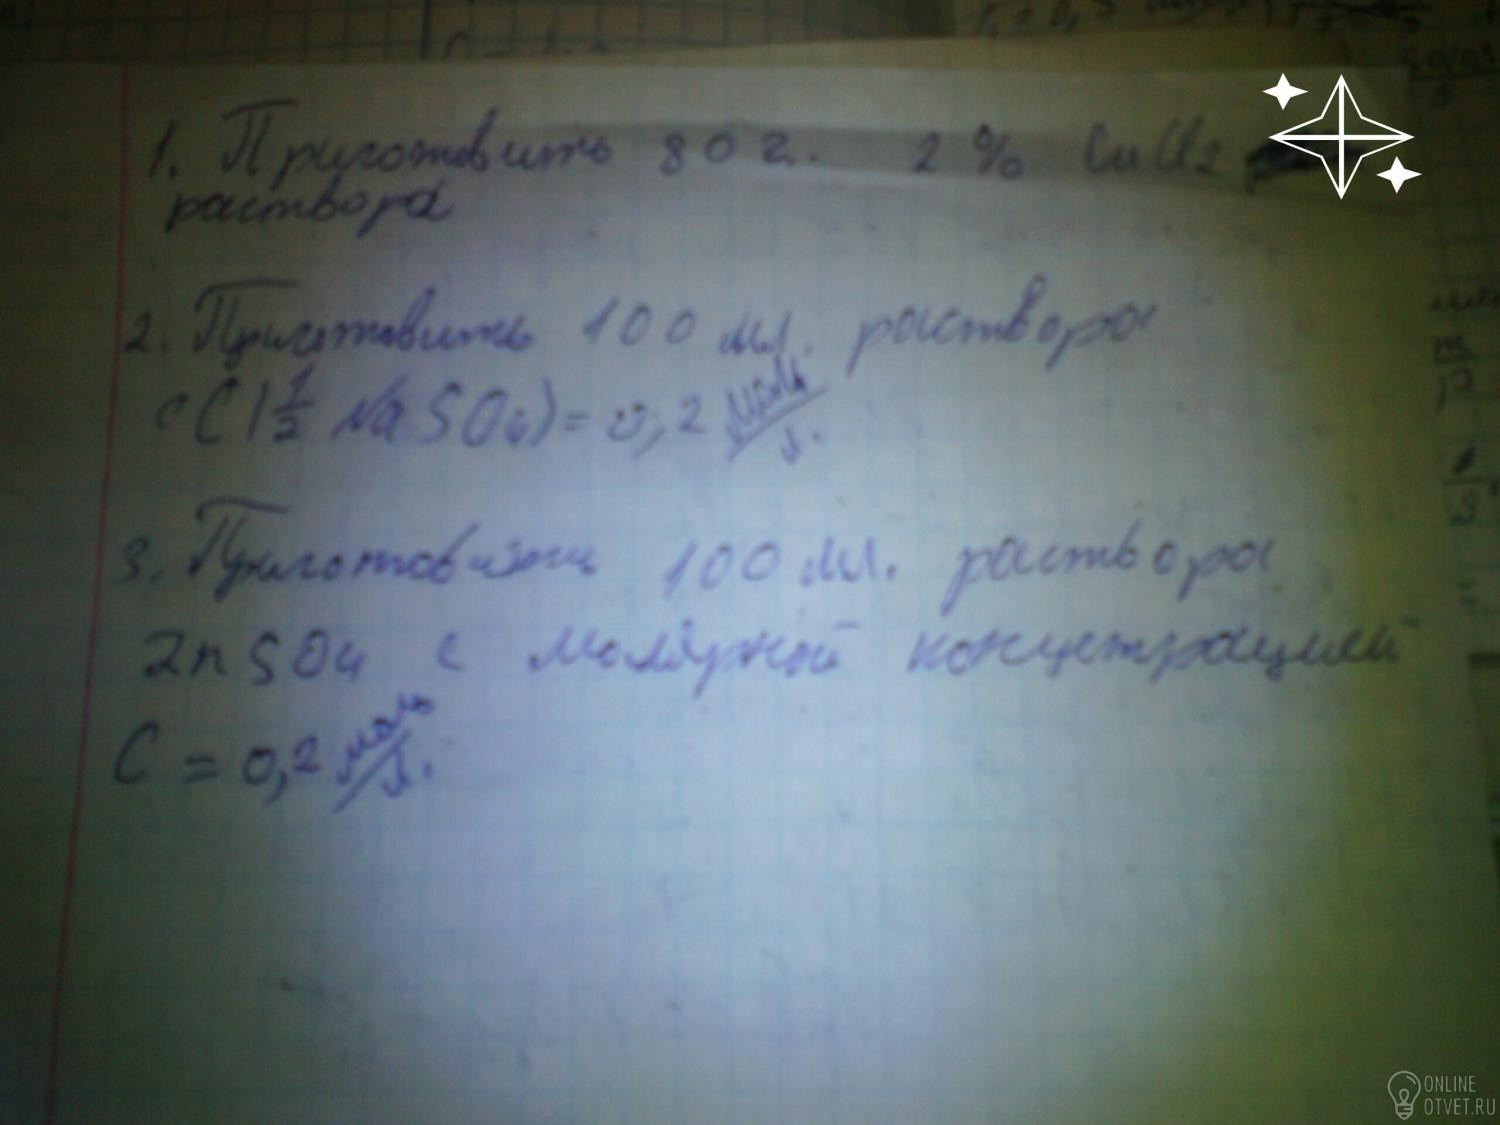 1. Приготовить 80 г. 2 % CuCl2
раствора
2. Приготовить 100 мл. раствора
с C(1 1/2 NaSO4) = 0,2 моль/л.
3. Приготовить 100 мл. раствора
ZnSO4 с молярной концетрацией
C = 0,2 моль/л.
ONLINE
OTVET.RU